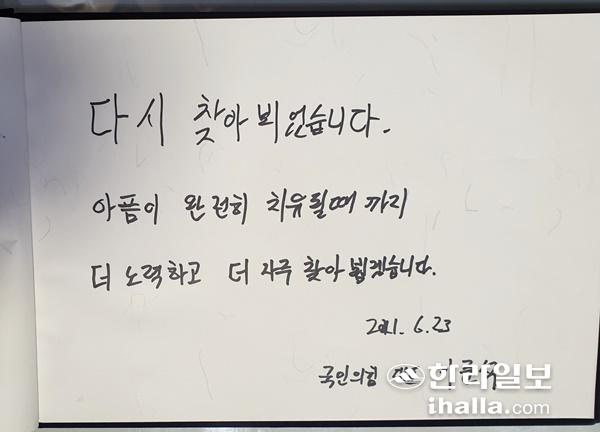 다시 찾아 뵈었습니다.
아픔이 완전히 치유될때 까지
더 노력하고 더 자주 찾아 뵙겠습니다.
2021. 6. 23
국민의힘
한라일보
ihalla.com